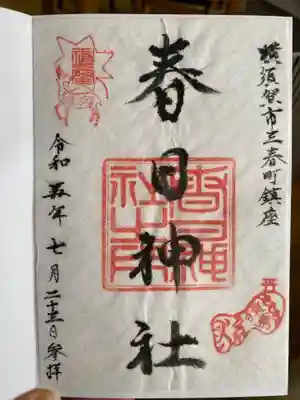 横須賀市三春町鎮座
春日神社
令和五年七月二十三日参拝